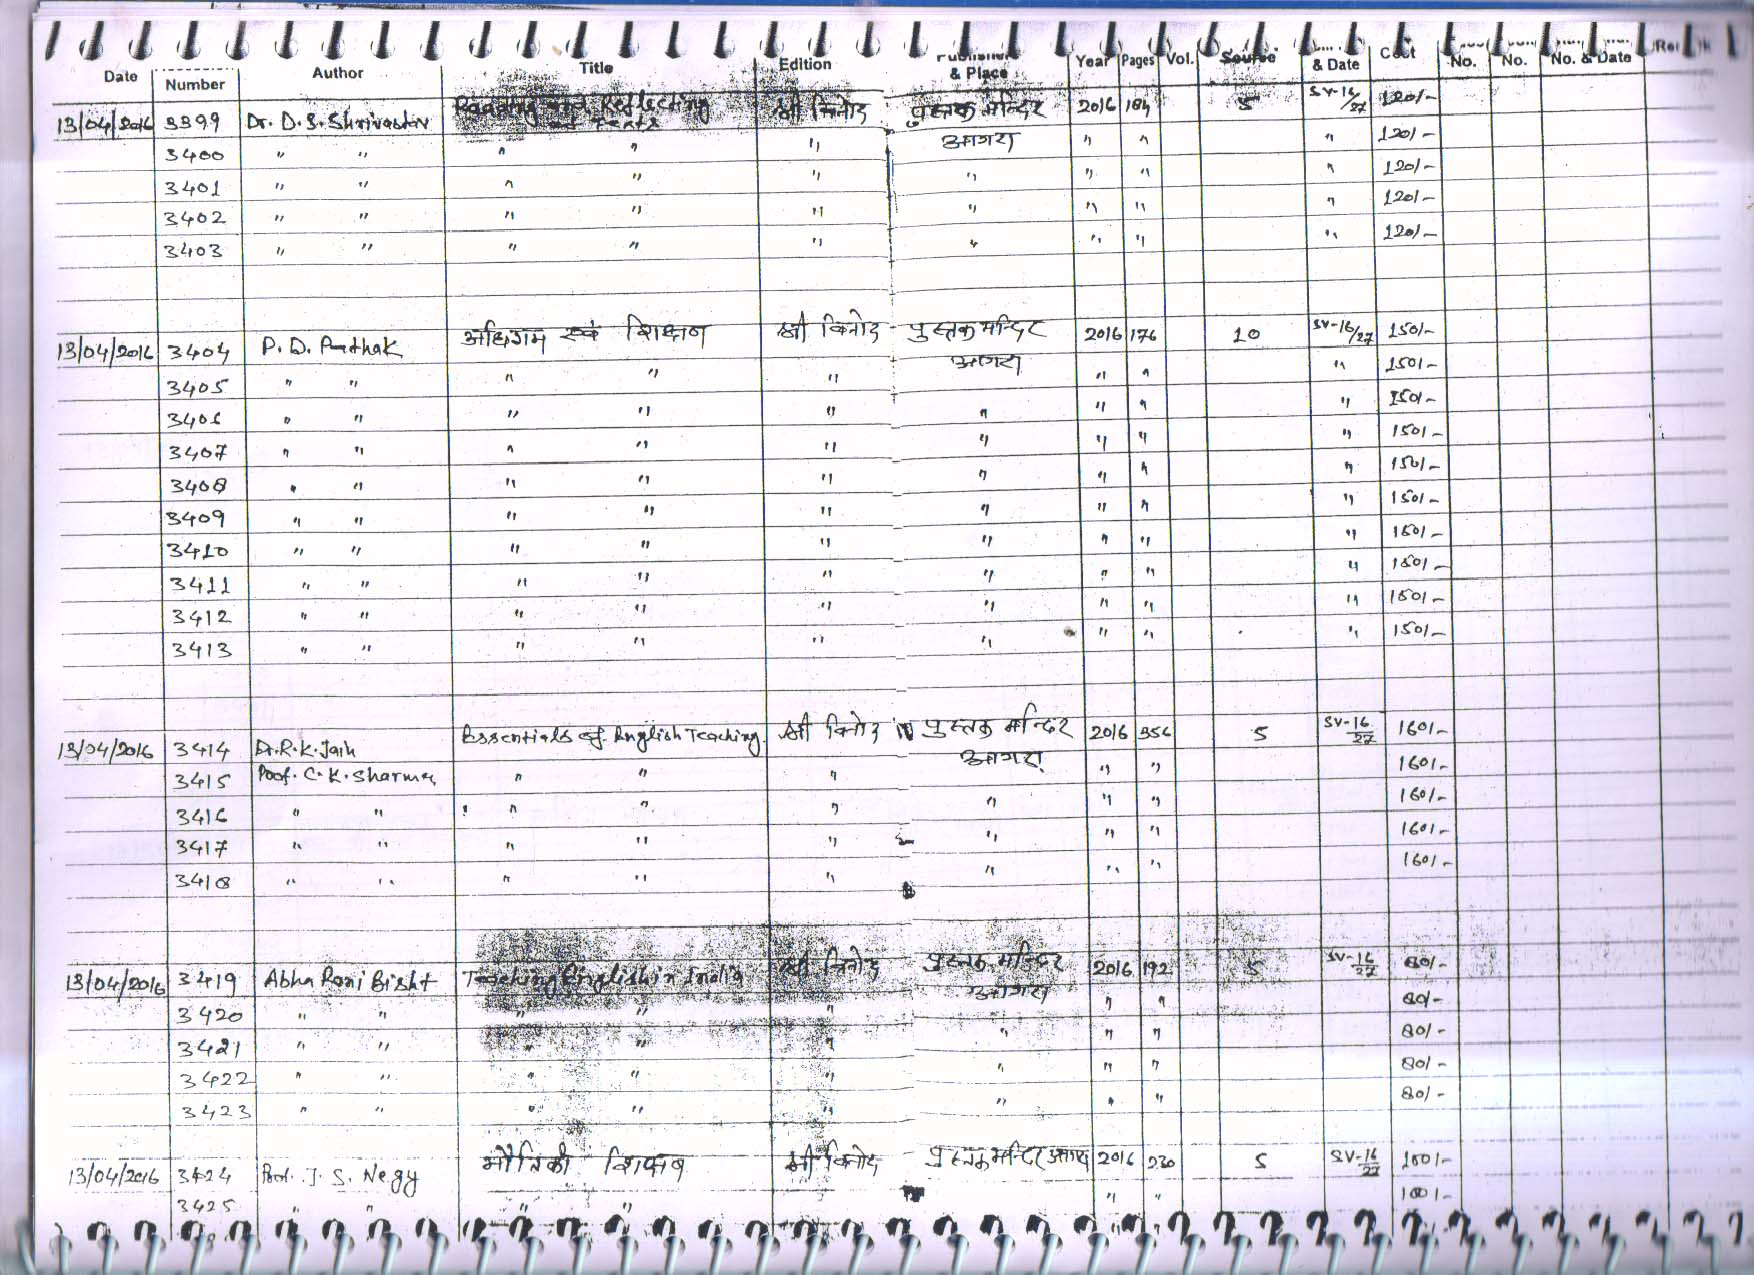 Date Number Author Title Edition & Place Year Pages Vol. Source & Date Cost No. No. No. & Date
13/04/2016 3399 Dr. D. S. Shrivastav Reading and Reflecting श्री विनोद पुस्तक मन्दिर 2016 184 5 SV-16/27 120/-
3400 " " " " " आगरा " " " 120/-
3401 " " " " " " " " " 120/-
3402 " " " " " " " " " 120/-
3403 " " " " " " " " " 120/-
13/04/2016 3404 P. D. Pathak अधिगम एवं शिक्षण श्री विनोद पुस्तक मन्दिर 2016 176 10 SV-16/27 150/-
3405 " " " " " आगरा " " " 150/-
3406 " " " " " " " " " 150/-
3407 " " " " " " " " " 150/-
3408 " " " " " " " " " 150/-
3409 " " " " " " " " " 150/-
3410 " " " " " " " " " 150/-
3411 " " " " " " " " " 150/-
3412 " " " " " " " " " 150/-
3413 " " " " " " " " " 150/-
13/04/2016 3414 Dr. R. K. Jain Essentials of English Teaching श्री विनोद पुस्तक मन्दिर 2016 356 5 SV-16/27 160/-
3415 Prof. C. K. Sharma " " " आगरा " " 160/-
3416 " " " " " " " " 160/-
3417 " " " " " " " " 160/-
3418 " " " " " " " " 160/-
13/04/2016 3419 Abha Rani Bisht Teaching English in India श्री विनोद पुस्तक मन्दिर 2016 192 5 SV-16/27 80/-
3420 " " " " " आगरा " " 80/-
3421 " " " " " " " " 80/-
3422 " " " " " " " " 80/-
3423 " " " " " " " " 80/-
13/04/2016 3424 Prof. J. S. Negy भौतिकी शिक्षण श्री विनोद पुस्तक मन्दिर आगरा 2016 230 5 SV-16/27 180/-
3425 " " " " " "